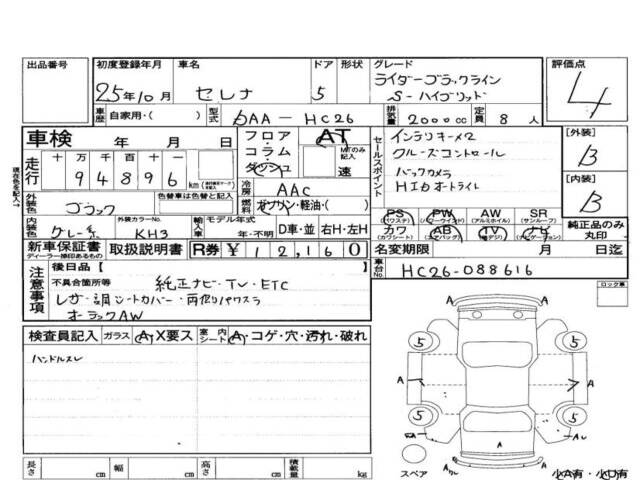 出品番号
初度登録年月
25年10月
車名
セレナ
ドア
5
形状
グレード
ライダーブラックライン
S-ハイブリッド
評価点
4
車歴
自家用・( )
型式
DAA-HC26
排気量
2000cc
定員
8人
車検
年 月 日
走行
十 万 千 百 十
94896
km
フロア・コラム・ダッシュ
AT
MTのみ記入
速
冷房
AAC
燃料
ガソリン・軽油・( )
セールスポイント
インテリキー×2
クルーズコントロール
バックカメラ
HID オートライト
[外装]
B
[内装]
B
現在色を記入→
外装色
色替車は色替と記入
ブラック
内装色
グレー系
外装カラーNo.
KH3
輸入車
モデル年式
年・不明
D車・並
右H・左H
PS
(パワステ)
PW
(パワーウインド)
AW
(アルミホイル)
SR
(サンルーフ)
カワ
(カワシート)
AB
(エアバッグ)
TV
(テレビ)
ナビ
(ナビゲーション)
純正品のみ丸印
新車保証書
ディーラー捺印あるもの
取扱説明書
R券
¥12,160
名変期限
月 日迄
車台No.
HC26-088616
注意事項
後日品【
不具合箇所等
純正ナビ・TV・ETC
レザー調シートカバー・両側パワスラ
オーラックAW
ロック車
検査員記入
ガラス
A・X要ス
室内シート
A・コゲ・穴・汚れ・破れ
ハンドルスレ
5 5
A A A
5 5
A
A
スペア
小A有・小U有
長さ cm
幅 cm
高さ cm
積載量 kg